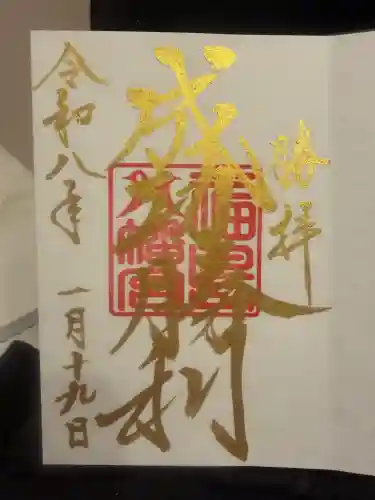 勝拝
成就勝利
八幡宮
令和八年 一月十九日